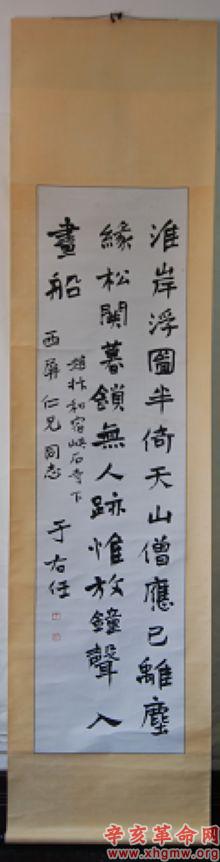 淮岸浮圖半倚天山僧應已離塵
緣松關暮鎖無人跡惟放鐘聲入
畫船
趙性和宿峽石寺下
西屏仁兄同志
于右任
辛亥革命网
www.xhgmw.org